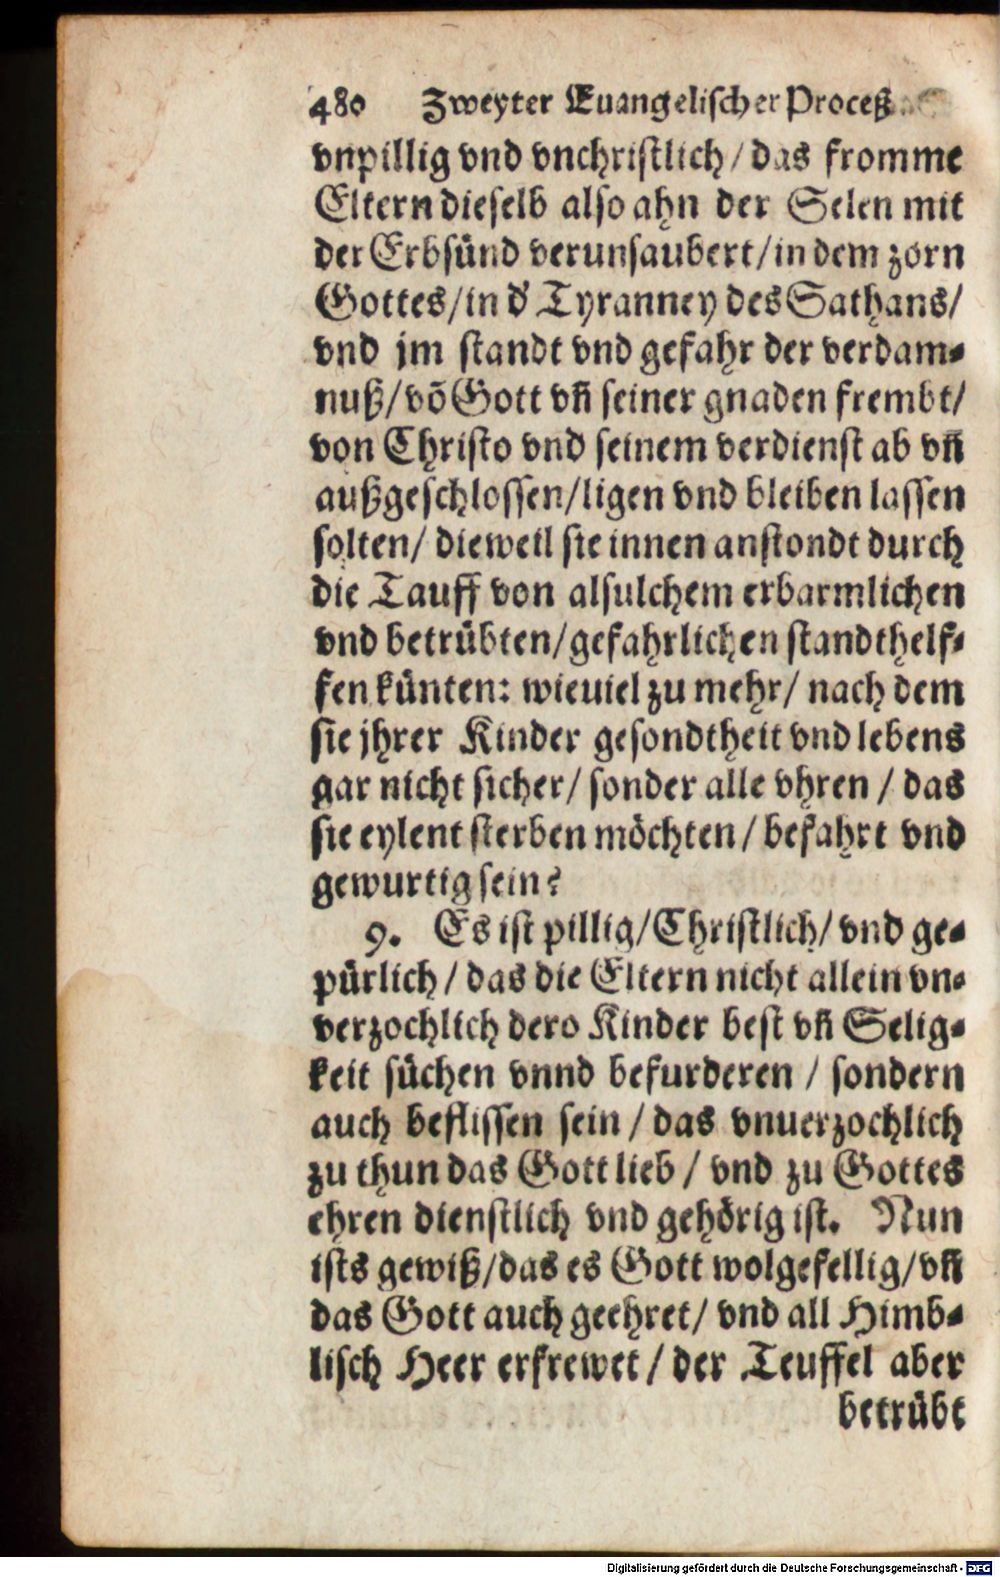 480 Zweyter Euangelischer Proceß
vnpillig vnd vnchristlich/ das fromme
Eltern dieselb also ahn der Selen mit
der Erbsünd verunsaubert/ in dem zorn
Gottes/ in d' Tyranney des Sathans/
vnd jm standt vnd gefahr der verdam⸗
nuß/ võ Gott vñ seiner gnaden frembt/
von Christo vnd seinem verdienst ab vñ
außgeschlossen/ ligen vnd bleiben lassen
solten/ dieweil sie innen anstondt durch
die Tauff von alsulchem erbarmlichen
vnd betrübten/ gefahrlichen standt helf⸗
fen künten: wieuiel zu mehr/ nach dem
sie jhrer Kinder gesondtheit vnd lebens
gar nicht sicher/ sonder alle vhren / das
sie eylent sterben möchten/ befahrt vnd
gewurtig sein?
9. Es ist pillig/ Christlich/ vnd ge⸗
pürlich/ das die Eltern nicht allein vn⸗
verzochlich dero Kinder best vñ Selig⸗
keit süchen vnnd befurderen / sondern
auch beflissen sein / das vnuerzochlich
zu thun das Gott lieb / vnd zu Gottes
ehren dienstlich vnd gehörig ist. Nun
ists gewiß/ das es Gott wolgefellig/ vñ
das Gott auch geehret/ vnd all Himb⸗
lisch Heer erfrewet / der Teuffel aber
betrübt
Digitalisierung gefördert durch die Deutsche Forschungsgemeinschaft - DFG